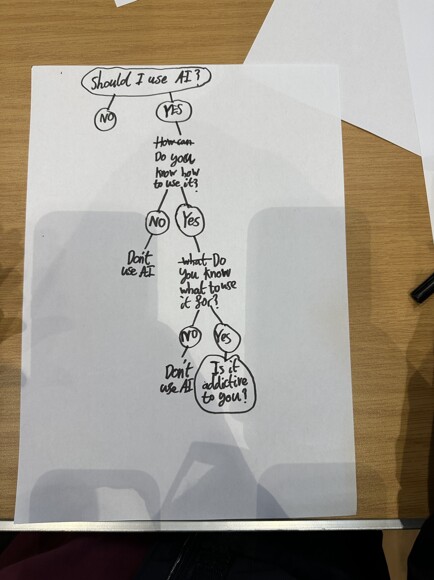 Should I use AI?
NO
YES
How can
Do you
know how
to use it?
NO
Yes
Don't
use AI
what Do
you know
what to use
it for?
NO
Yes
Don't
use AI
Is it
addictive
to you?